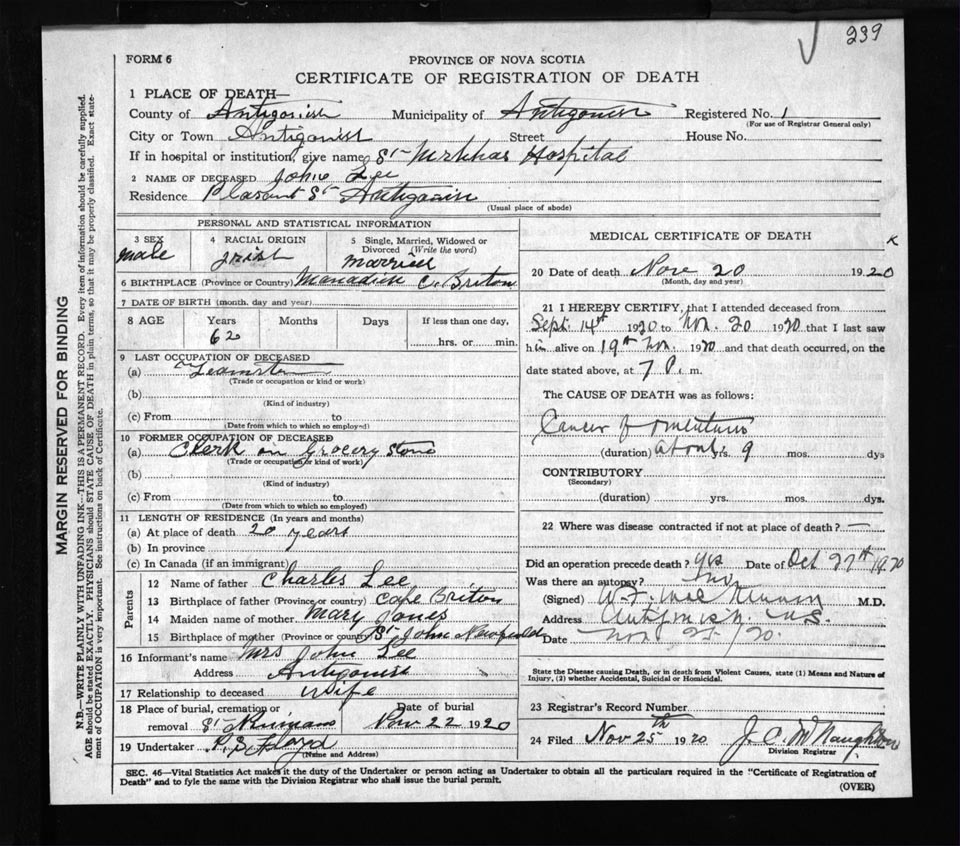 239
FORM 6
PROVINCE OF NOVA SCOTIA
CERTIFICATE OF REGISTRATION OF DEATH
1 PLACE OF DEATH—
County of Antigonish Municipality of Antigonish Registered No. 1
(For use of Registrar General only)
City or Town Antigonish Street House No.
If in hospital or institution, give name St Hospital
2 NAME OF DECEASED John Lee
Residence Plasant St Antigonish
(Usual place of abode)
PERSONAL AND STATISTICAL INFORMATION
3 SEX 4 RACIAL ORIGIN 5 Single, Married, Widowed or
Divorced (Write the word)
male Irish married
6 BIRTHPLACE (Province or Country) C. Briton
7 DATE OF BIRTH (month, day and year)
8 AGE Years Months Days If less than one day,
62 hrs. or min.
9 LAST OCCUPATION OF DECEASED
(a) Teamster
(Trade or occupation or kind or work)
(b)
(Kind of industry)
(c) From to
(Date from which to which so employed)
10 FORMER OCCUPATION OF DECEASED
(a) Clerk in Grocery Store
(Trade or occupation or kind of work)
(b)
(Kind of industry)
(c) From to
(Date from which to which so employed)
11 LENGTH OF RESIDENCE (In years and months)
(a) At place of death 20 years
(b) In province
(c) In Canada (if an immigrant)
Parents
12 Name of father Charles Lee
13 Birthplace of father (Province or country) Cape Briton
14 Maiden name of mother Mary Jones
15 Birthplace of mother (Province or country) St John
16 Informant's name Mrs John Lee
Address Antigonish
17 Relationship to deceased wife
18 Place of burial, cremation or Date of burial
removal St Ninians Nov 22 1920
19 Undertaker P.S. Floyd
(Name and Address)
MEDICAL CERTIFICATE OF DEATH
K
20 Date of death Nov 20 1920
(Month, day and year)
21 I HEREBY CERTIFY, that I attended deceased from
Sept. 14th 1920 to Nov. 20 1920 that I last saw
him alive on 19th Nov. 1920 and that death occurred, on the
date stated above, at 7 P. m.
The CAUSE OF DEATH was as follows:
Cancer of omentum
(duration) about yrs. 9 mos. dys
CONTRIBUTORY
(Secondary)
(duration) yrs. mos. dys.
22 Where was disease contracted if not at place of death? —
Did an operation precede death? Yes Date of Oct 27th 1920
Was there an autopsy? No
(Signed) W. F. M.D.
Address Antigonish N.S.
Date Nov 25/20.
State the Disease causing Death, or in death from Violent Causes, state (1) Means and Nature of
Injury, (2) whether Accidental, Suicidal or Homicidal.
23 Registrar's Record Number
24 Filed Nov 25th 1920 J. C. McNaughton
Division Registrar
SEC. 46—Vital Statistics Act makes it the duty of the Undertaker or person acting as Undertaker to obtain all the particulars required in the "Certificate of Registration of
Death" and to fyle the same with the Division Registrar who shall issue the burial permit.
(OVER)
MARGIN RESERVED FOR BINDING
N.B.—WRITE PLAINLY WITH UNFADING INK—THIS IS A PERMANENT RECORD. Every item of information should be carefully supplied.
AGE should be stated EXACTLY. PHYSICIANS should STATE CAUSE OF DEATH in plain terms, so that it may be properly classified. Exact state-
ment of OCCUPATION is very important. See instructions on back of Certificate.